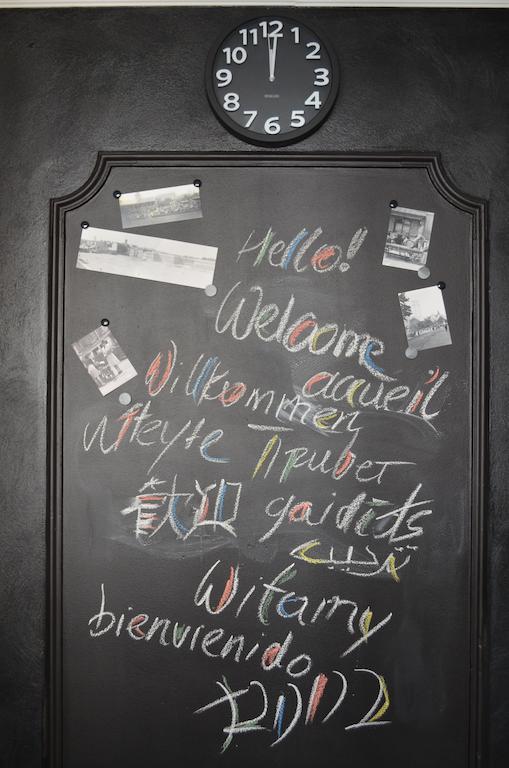 12 1 2 3 4 5 6 7 8 9 10 11
Hello!
Welcome
accueil
Willkommen
witeyte
Привет
歓迎 gaidīts
ترحيب
Witamy
bienvienido